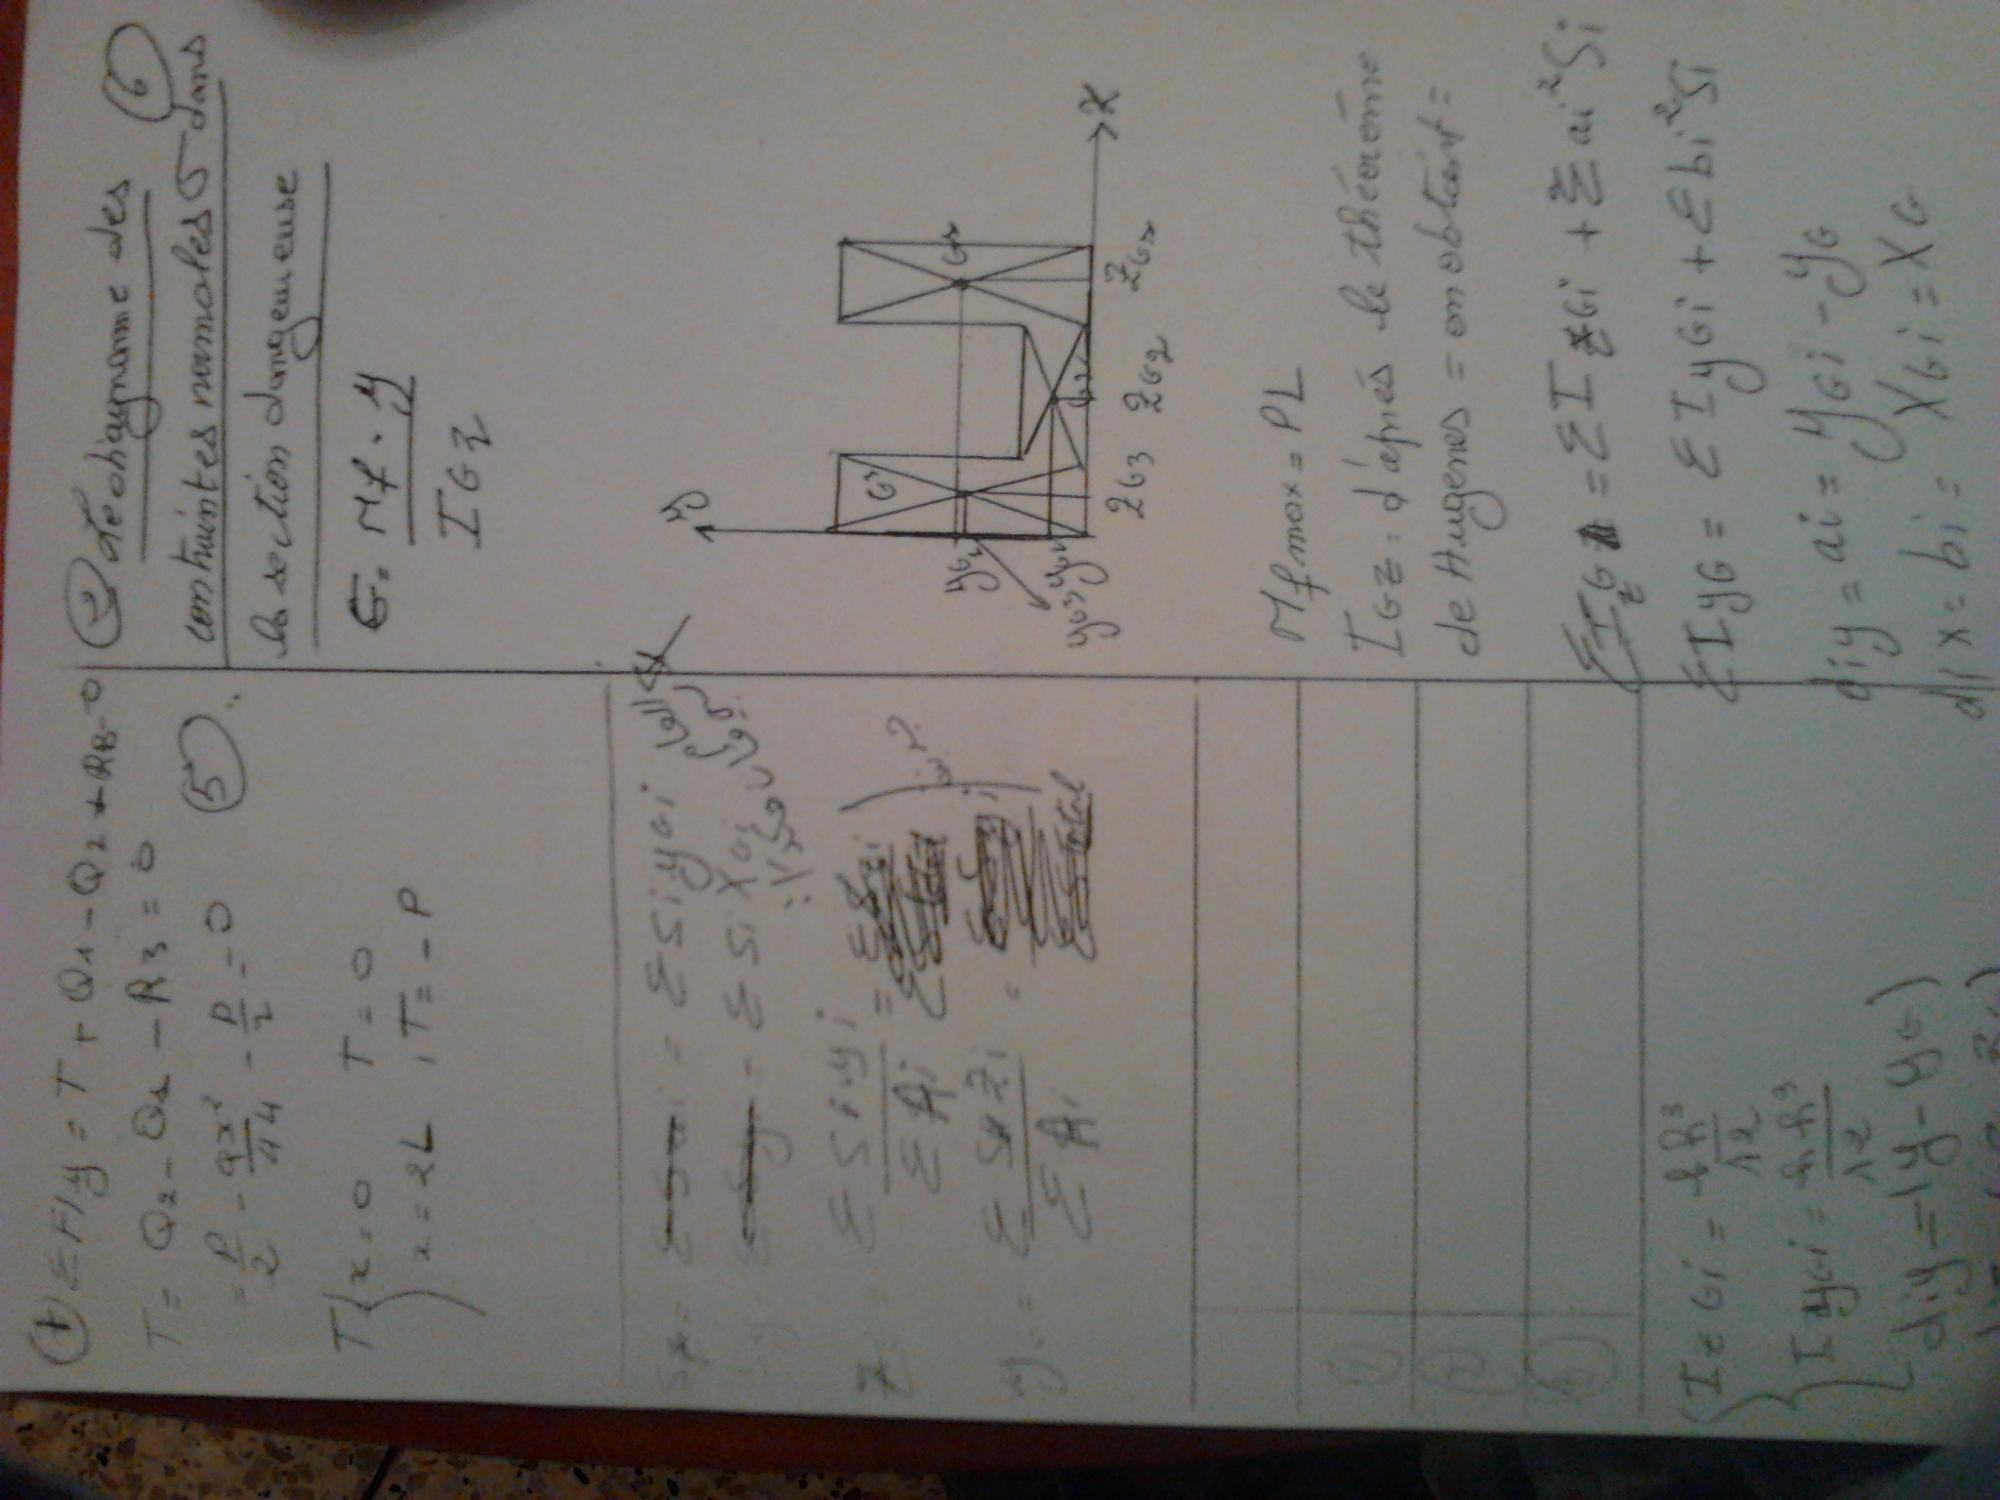 ΣF/y = T + Q1 - Q2 + RB = 0
T = Q2 - Q1 - R3 = 0
= P/2 - qx²/44 - P/2 = 0
5
T { x = 0 T = 0
x = 2L , T = - P
= Σ Si yGi
= Σ Si XGi
Σ Si yi / Σ Ai =
yG = Σ Si Zi / Σ Ai =
(1)
(2)
(3)
IzGi = bh³/12
IyGi = hb³/12
diy = (y - yG)
6
Le diagramme des
contraintes normales σ dans
la section dangereuse
σ = Mf . y / IGz
y
G3
G1
X
yG1
yG3
ZG3
ZG2
Mfmax = PL
IGz = d'après le théorème
de Hugenes = on obtient =
IzG = Σ IzGi + Σ ai² Si
Σ IyG = Σ IyGi + Σ bi² Si
diy = ai = yGi - yG
dix = bi = XGi = XG